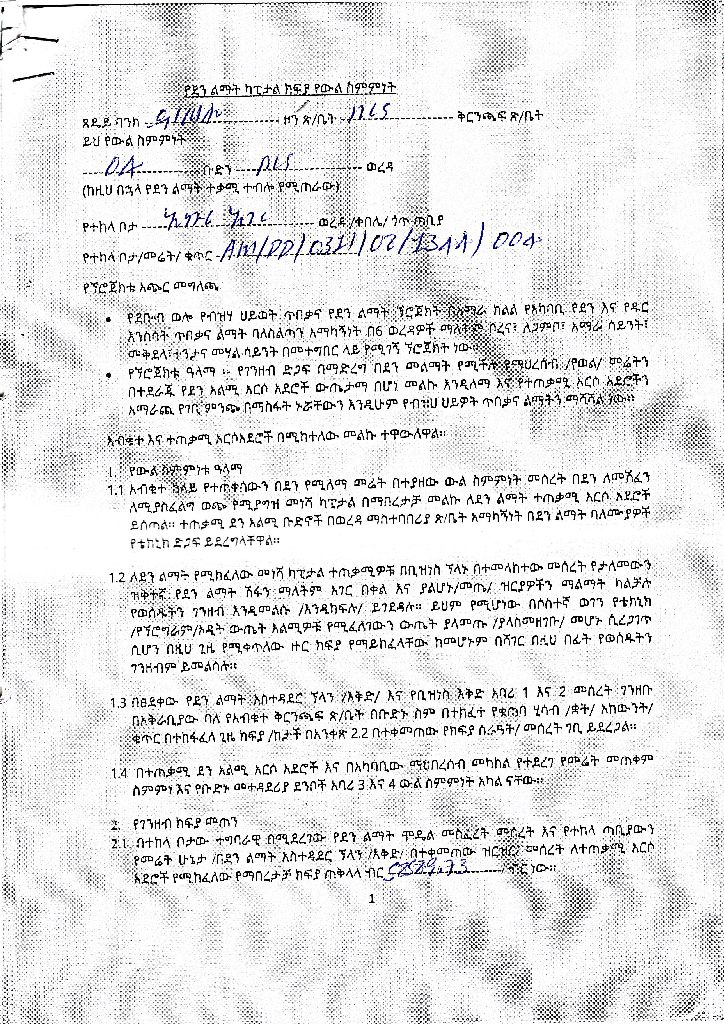 የደን ልማት ካፒታል ክፍያ የውል ስምምነት
ጸደይ ባንክ ዞን ጽ/ቤት ቅርንጫፍ ጽ/ቤት
ይህ የውል ስምምነት
04 ቡድን ወረዳ
(ከዚህ በኋላ የደን ልማት ተቃሚ ተብሎ የሚጠራው)
የተከላ ቦታ ወረዳ /ቀበሌ/ ጎጥ ጣቢያ
የተከላ ቦታ/መሬት/ ቁጥር AM/DD/0321/02/1344/004
የፕሮጀክቱ አጭር መግለጫ
• የደቡብ ወሎ የብዝሃ ህይወት ጥበቃና የደን ልማት ፕሮጀክት በአማራ ክልል የአካባቢ የደን እና የዱር
እንስሳት ጥበቃና ልማት ባለስልጣን አማካኝነት በ6 ወረዳዎች ማለትም ቦረና፣ ለጋምቦ፣ አማራ ሳይንት፣
መቅደላ፣ተንታና መሃል ሳይንት በመተግበር ላይ የሚገኝ ፕሮጀክት ነው።
• የፕሮጀክቱ ዓላማ ፡- የገንዘብ ድጋፍ በማድረግ በደን መልማት የሚችሉ የማህረሰብ /የወል/ መሬትን
በተደራጁ የደን አልሚ አርሶ አደሮች ውጤታማ በሆነ መልኩ እንዲለማ እና የተጠቃሚ አርሶ አደሮችን
አማራጪ የገቢ ምንጭ በማስፋት ኑሯቸውን እንዲሁም የብዝሀ ህይዎት ጥበቃና ልማትን ማሻሻል ነው።
አብቁተ እና ተጠቃሚ አርሶአደሮች በሚከተለው መልኩ ተዋውለዋል።
1. የውል ስምምነቱ ዓላማ
1.1 አብቁተ ከላይ የተጠቀሰውን በደን የሚለማ መሬት በተያዘው ውል ስምምነት መሰረት በደን ለመሸፈን
ለሚያስፈልግ ወጭ የሚያግዝ መነሻ ካፒታል በማበረታቻ መልኩ ለደን ልማት ተጠቃሚ አርሶ አደሮች
ይሰጣል። ተጠቃሚ ደን አልሚ ቡድኖች በወረዳ ማስተባበሪያ ጽ/ቤት አማካኝነት በደን ልማት ባለሙያዎች
የቴክኒክ ድጋፍ ይደረግላቸዋል።
1.2 ለደን ልማት የሚከፈለው መነሻ ካፒታል ተጠቃሚዎቹ በቢዝነስ ፕላኑ በተመላከተው መሰረት የታለመውን
ዝቅተኛ የደን ልማት ሽፋን ማለትም አገር በቀል እና ያልሆኑ/መጤ/ ዝርያዎችን ማልማት ካልቻሉ
የወሰዱትን ገንዘብ እንዲመልሱ /እንዲከፍሉ/ ይገደዳሉ። ይህም የሚሆነው በሶስተኛ ወገን የቴክኒክ
/የፕሮግራም/ኦዲት ውጤት አልሚዎቹ የሚፈለገውን ውጤት ያላመጡ /ያላስመዘገቡ/ መሆኑ ሲረጋገጥ
ሲሆን በዚህ ጊዜ የሚቀጥለው ዙር ክፍያ የማይከፈላቸው ከመሆኑም በሻገር በዚህ በፊት የወሰዱትን
ገንዘብም ይመልሳሉ።
1.3 በፀደቀው የደን ልማት አስተዳደር ፕላን /እቅድ/ እና የቢዝነስ እቅድ አባሪ 1 እና 2 መሰረት ገንዘቡ
በአቅራቢያው ባለ የአብቁተ ቅርንጫፍ ጽ/ቤት በቡድኑ ስም በተከፈተ የቁጠባ ሂሳብ /ቋት/ አካውንት/
ቁጥር በተከፋፈለ ጊዜ ክፍያ /ከታች በአንቀጽ 2.2 በተቀመጠው የክፍያ ስራዓት/ መሰረት ገቢ ይደረጋል።
1.4 በተጠቃሚ ደን አልሚ አርሶ አደሮች እና በአካባቢው ማህበረሰብ መካከል የተደረገ የመሬት መጠቀም
ስምምነ እና የቡድኑ መተዳደሪያ ደንቦች አባሪ 3 እና 4 ውል ስምምነት አካል ናቸው።
2. የገንዘብ ክፍያ መጠን
2.1. በተከላ ቦታው ተግባራዊ በሚደረገው የደን ልማት ሞዴል መስፈረት መሰረት እና የተከላ ጣቢያውን
የመሬት ሁኔታ /በደን ልማት አስተዳደር ፕላን /እቅድ/ በተቀመጠው ዝርዝር/ መሰረት ለተጠቃሚ አርሶ
አደሮች የሚከፈለው የማበረታቻ ክፍያ ጠቅላላ ብር /ብር ነው።
1